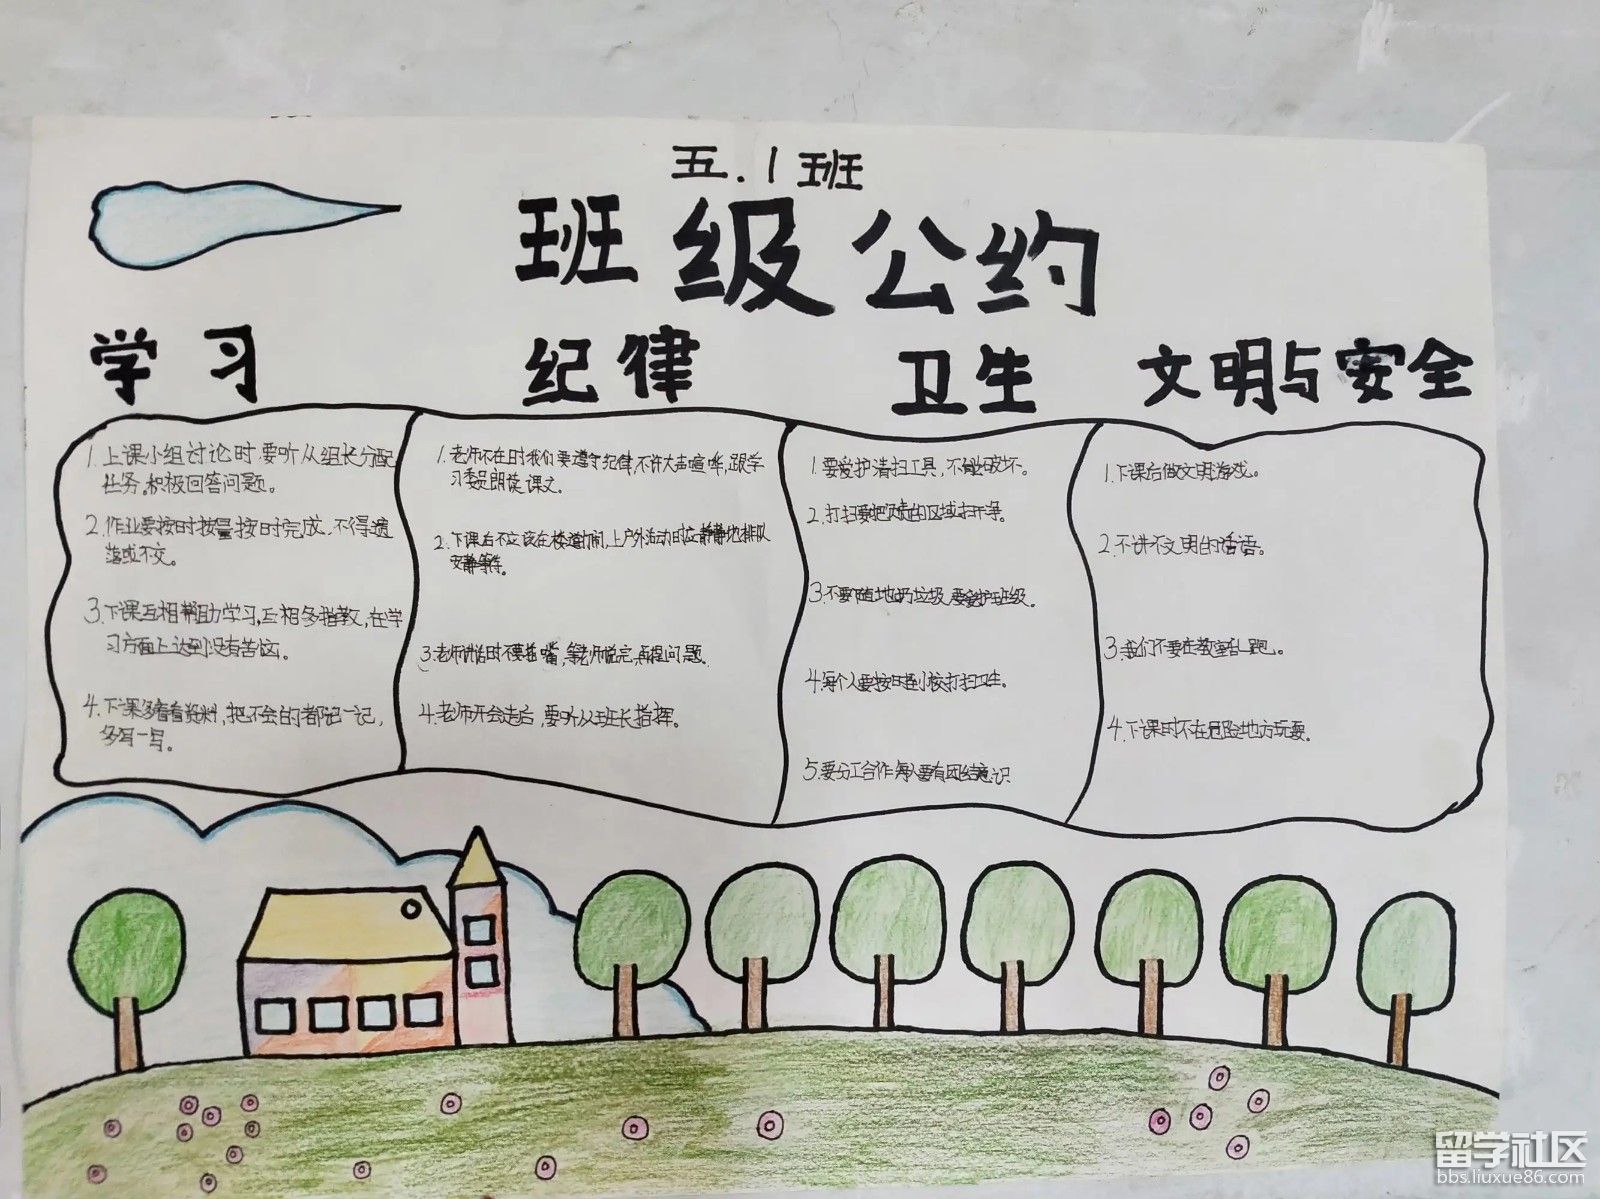 五.1班
班级公约
学习
1.上课小组讨论时,要听从组长分配
任务。积极回答问题。
2.作业要按时按量按时完成,不得遗
落或不交。
3.下课互相帮助学习,互相多指教,在学
习方面上达到没有苦恼。
4.下课多看看资料,把不会的都记一记,
多写一写。
纪律
1.老师不在时我们要遵守纪律,不许大声喧哗,跟学
习委员朗读课文。
2.下课后不应该在楼道打闹,上户外活动时应静静地排队
安静等待。
3.老师讲话时不要插嘴,等老师说完,再提问题。
4.老师开会走后,要听从班长指挥。
卫生
1.要爱护清扫工具,不做破坏。
2.打扫要把负责的区域扫干净。
3.不要随地扔垃圾,要爱护班级。
4.每个人要按时到校打扫卫生。
5.要分工合作每人要有团结意识
文明与安全
1.下课后做文明游戏。
2.不讲不文明的话语。
3.我们不要在教室乱跑。
4.下课时不在危险地方玩耍。
留学社区
bbs.liuxue86.com